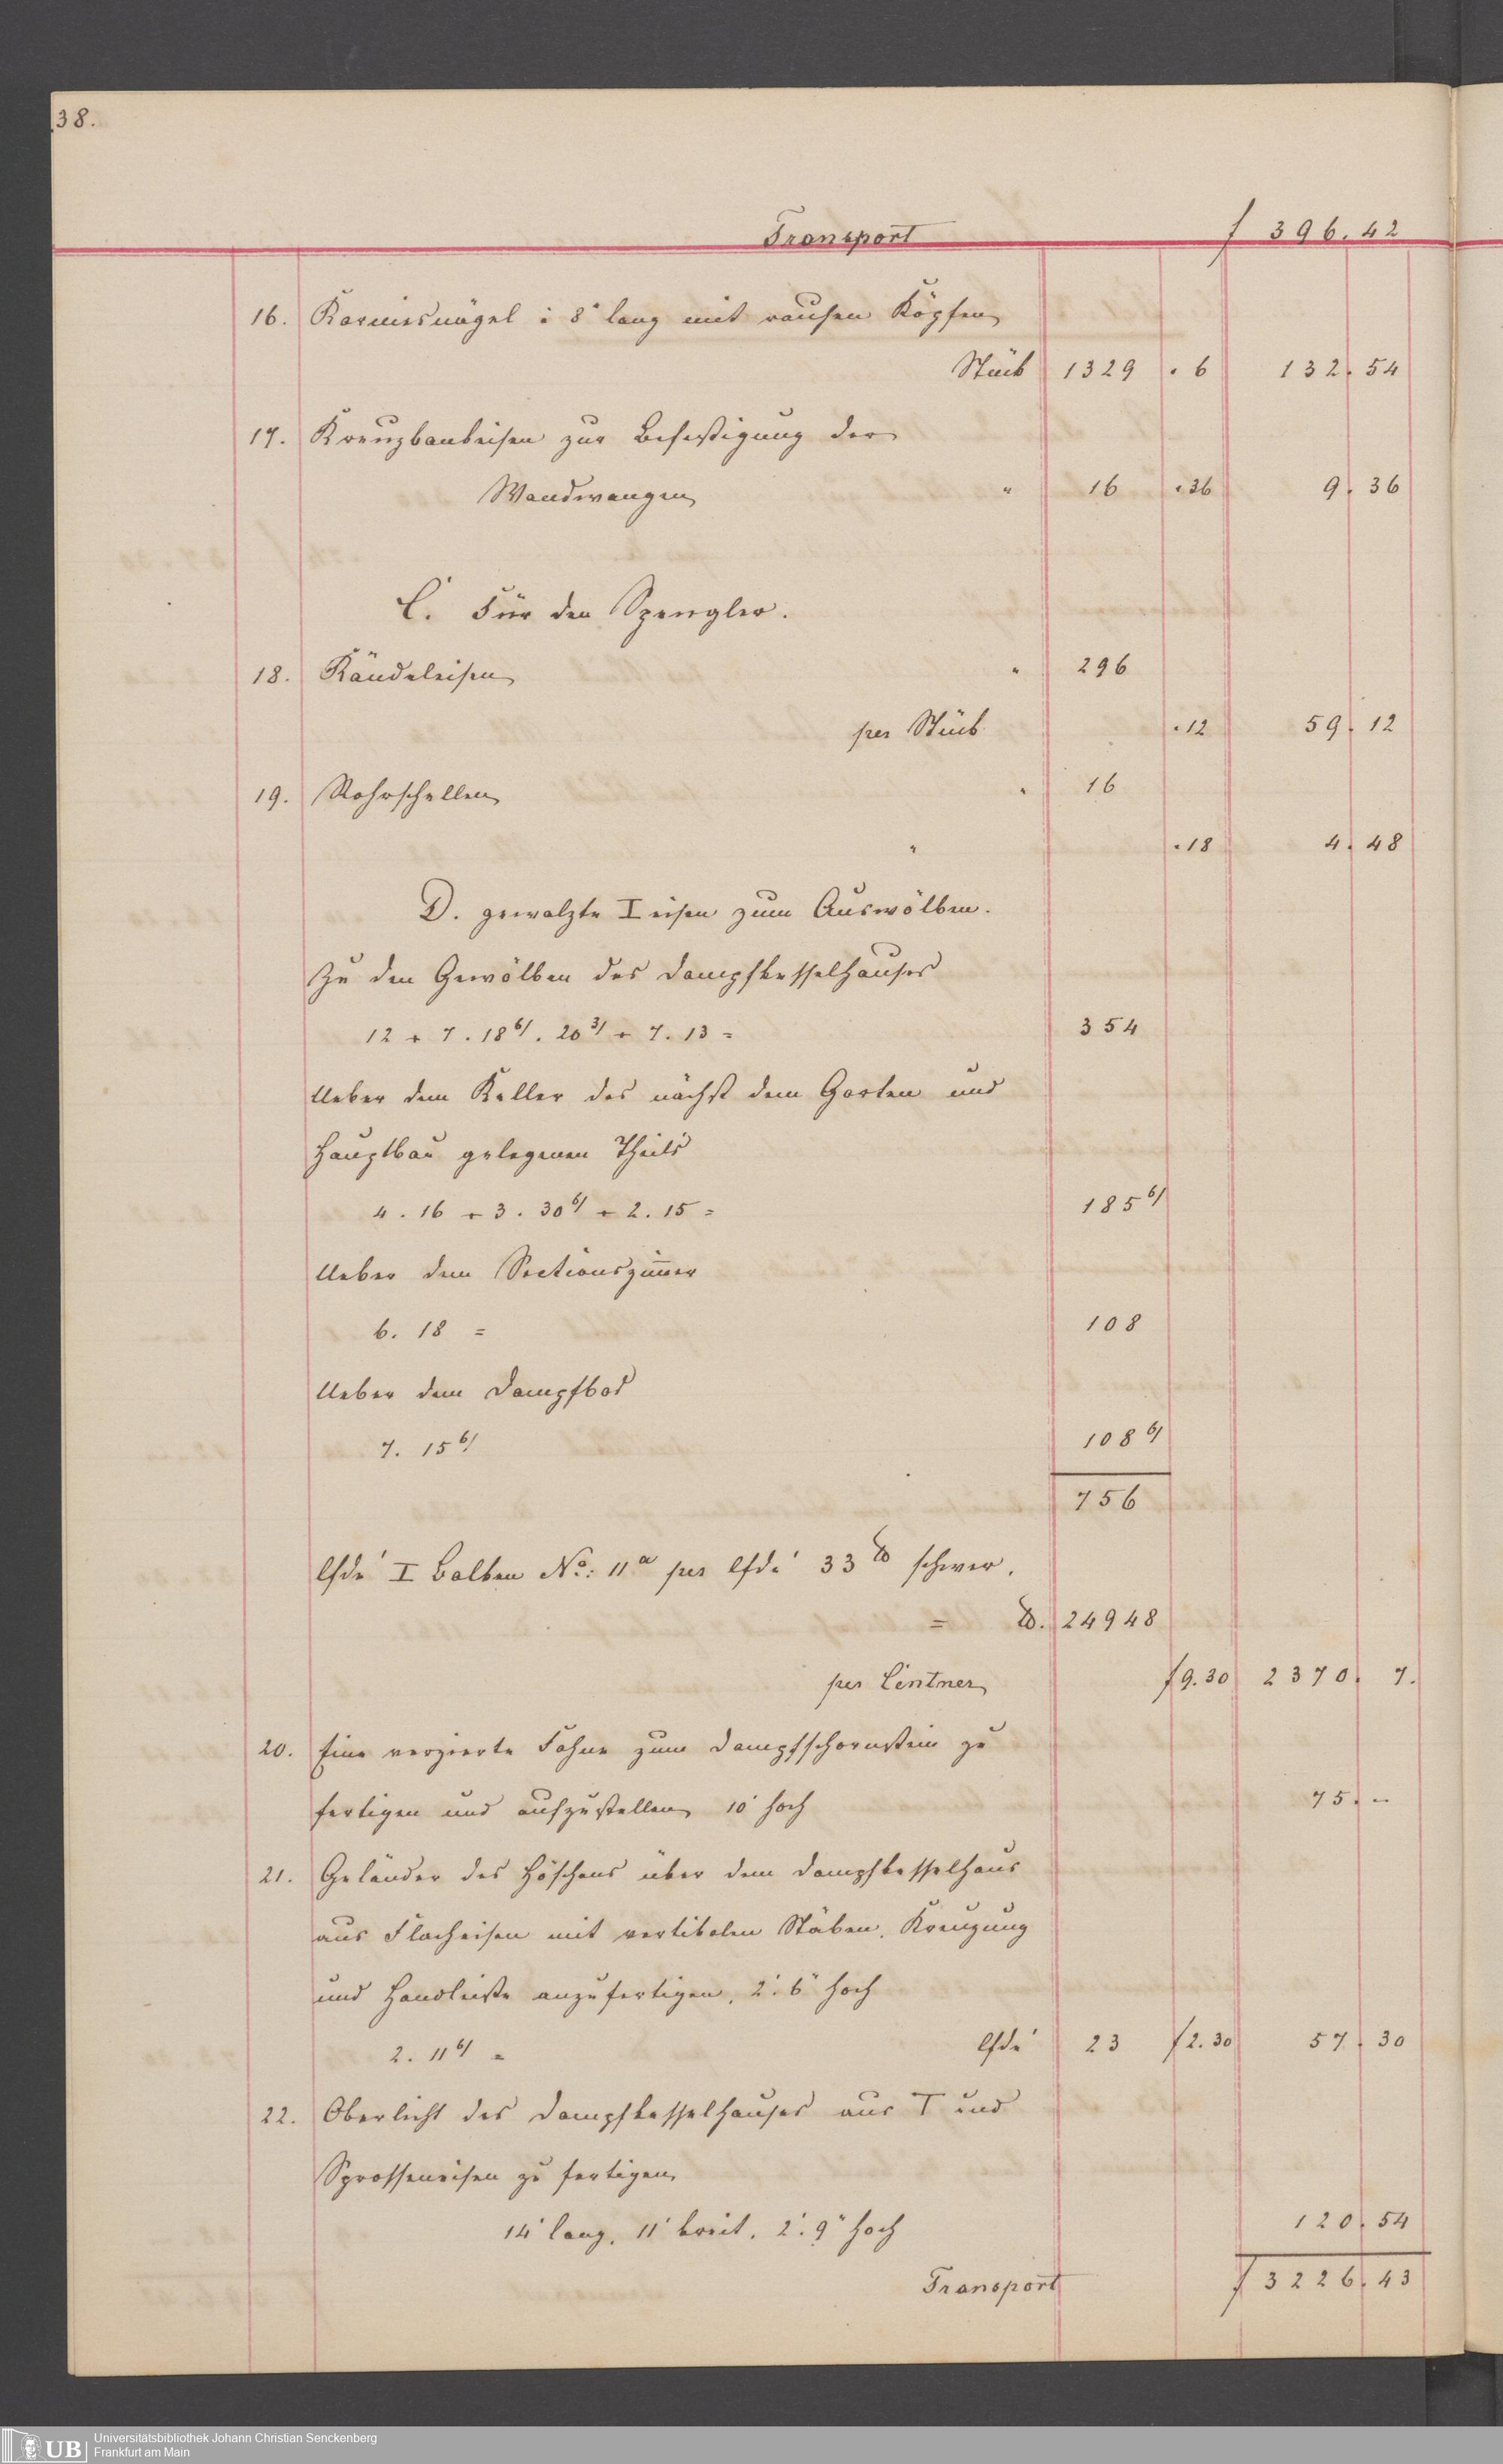 38.
Transport f 396. 42
16. Karniesnägel à 8" lang mit rauhen Köpfen
Stück 1329 " 6 132. 54
17. Kreuzbankeisen zur Befestigung der
Wandwangen " 16 " 36 9. 36
C. Für den Spengler.
18. Kändeleisen " 296
per Stück " 12 59. 12
19. Rohrschellen " 16
" " 18 4. 48
D. gewalzte I eisen zum Auswölben.
Zu den Gewölben des Dampfkesselhauses
12 + 7 . 18 6/ . 20 3/ + 7. 13 = 354
Ueber dem Keller des nächst dem Garten und
Hauptbau gelegenen Theils
4 . 16 + 3 . 30 6/ + 2. 15 = 185 6/
Ueber dem Sectionszim̅er
6. 18 = 108
Ueber dem Dampfbad
7. 15 6/ 108 6/
756
lfde' I Balken No: 11a per lfde' 33 ℔ schwer.
= ℔. 24948
per Centner f 9. 30 2370. 7.
20. Eine verzierte Fahne zum Dampfschornstein zu
fertigen und aufzustellen 10' hoch 75. --
21. Geländer des Höfchens über dem Dampfkesselhaus
aus Flacheisen mit vertikalen Stäben, Kreuzung
und Handleiste anzufertigen, 2'. 6" hoch
2. 11 6/ = lfde' 23 f 2. 30 57. 30
22. Oberlicht des Dampfkesselhauses aus T und
Sprosseneisen zu fertigen
14' lang, 11' breit, 2'. 9" hoch 120. 54
Transport f 3226. 43
UB
Universitätsbibliothek Johann Christian Senckenberg
Frankfurt am Main